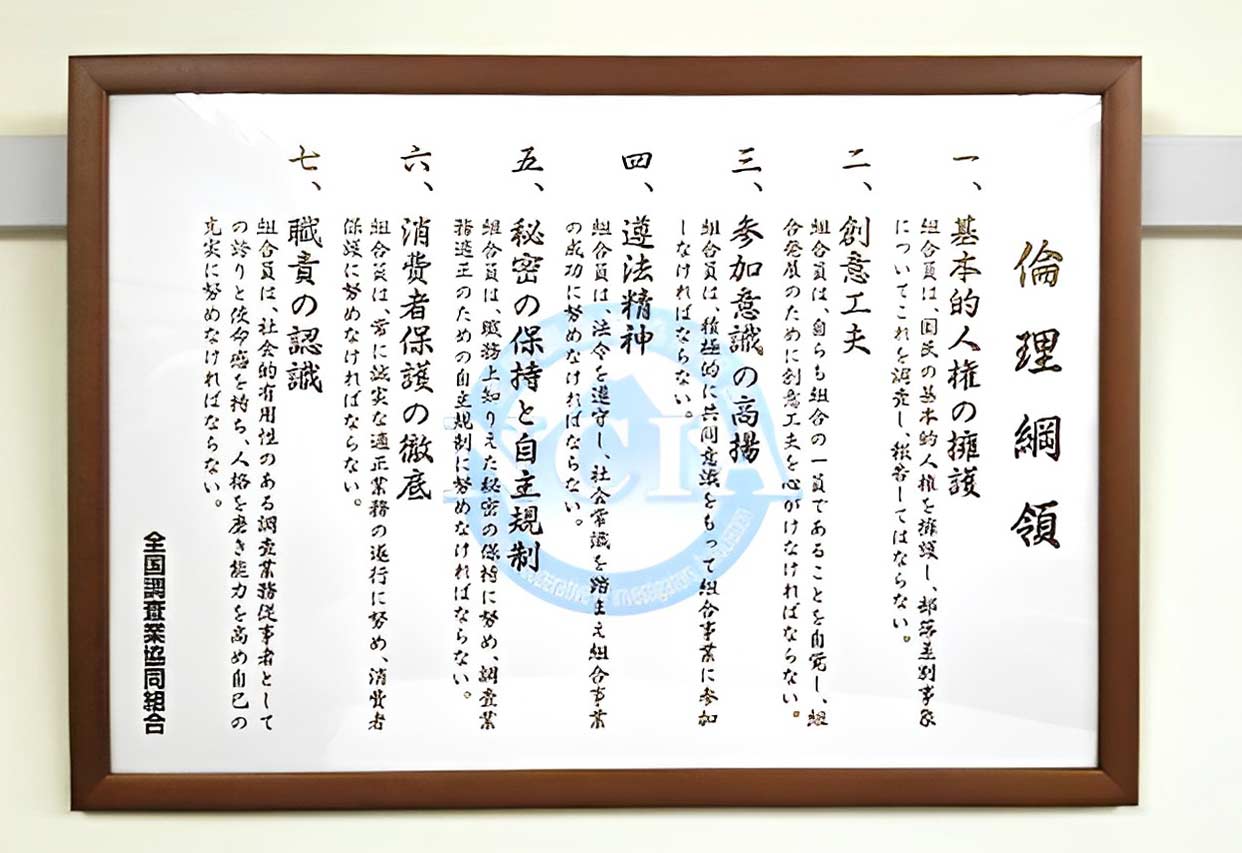 倫理綱領
一、基本的人権の擁護
組合員は、国民の基本的人権を擁護し、部落差別事象
についてこれを調査し、報告してはならない。
二、創意工夫
組合員は、自らも組合の一員であることを自覚し、組
合発展のために創意工夫を心がけなければならない。
三、参加意識の高揚
組合員は、積極的に共同意識をもって組合事業に参加
しなければならない。
四、遵法精神
組合員は、法令を遵守し、社会常識を踏まえ組合事業
の成功に努めなければならない。
五、秘密の保持と自主規制
組合員は、職務上知りえた秘密の保持に努め、調査業
務適正のための自主規制に努めなければならない。
六、消費者保護の徹底
組合員は、常に誠実な適正業務の遂行に努め、消費者
保護に努めなければならない。
七、職責の認識
組合員は、社会的有用性のある調査業務従事者として
の誇りと使命感を持ち、人格を磨き能力を高め自己の
充実に努めなければならない。
全国調査業協同組合
NCIA
Investigators Association